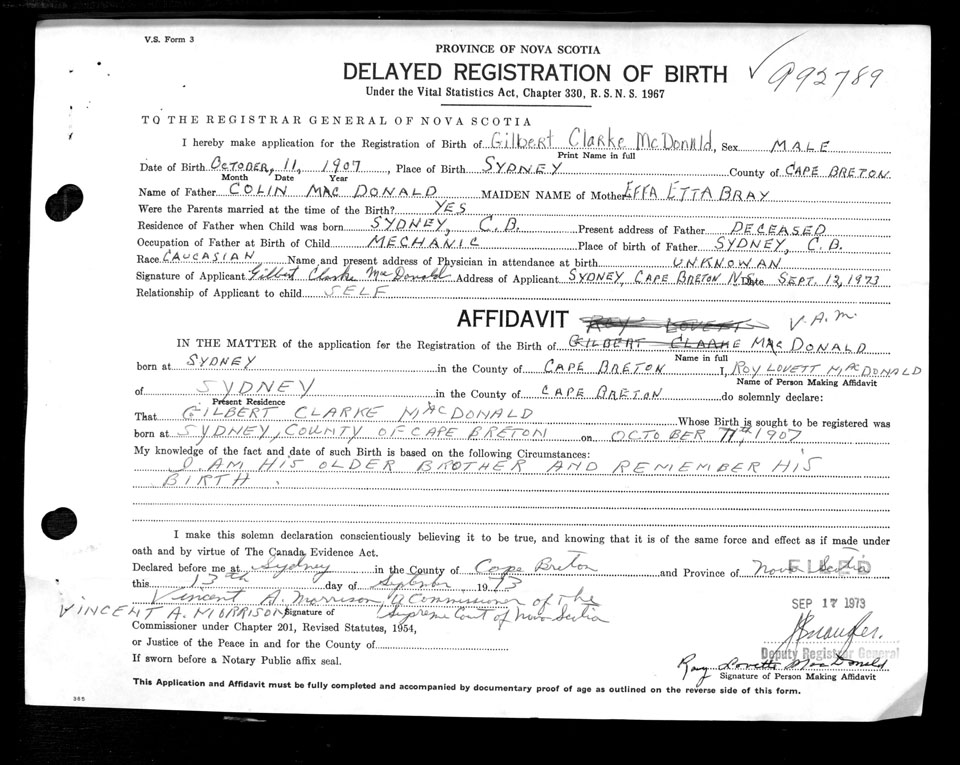 V.S. Form 3
PROVINCE OF NOVA SCOTIA
DELAYED REGISTRATION OF BIRTH ✓992789
Under the Vital Statistics Act, Chapter 330, R.S.N.S. 1967
TO THE REGISTRAR GENERAL OF NOVA SCOTIA
I hereby make application for the Registration of Birth of Gilbert Clarke McDonald, Sex MALE
Print Name in full
Date of Birth OCTOBER, 11, 1907, Place of Birth SYDNEY County of CAPE BRETON
Month Date Year
Name of Father COLIN MACDONALD MAIDEN NAME of Mother EFFA ETTA BRAY
Were the Parents married at the time of the Birth? YES
Residence of Father when Child was born SYDNEY, C.B. Present address of Father DECEASED
Occupation of Father at Birth of Child MECHANIC Place of birth of Father SYDNEY, C.B.
Race CAUCASIAN Name and present address of Physician in attendance at birth UNKNOWAN
Signature of Applicant Gilbert Clarke MacDonald Address of Applicant SYDNEY, CAPE BRETON N.S. Date SEPT. 12, 1973
Relationship of Applicant to child SELF
AFFIDAVIT ROY LOVETT V.A.M.
IN THE MATTER of the application for the Registration of the Birth of GILBERT CLARKE MACDONALD
Name in full
born at SYDNEY in the County of CAPE BRETON I, ROY LOVETT MACDONALD
Name of Person Making Affidavit
of SYDNEY in the County of CAPE BRETON do solemnly declare:
Present Residence
That GILBERT CLARKE MACDONALD Whose Birth is sought to be registered was
born at SYDNEY, COUNTY OF CAPE BRETON on OCTOBER 11TH, 1907
My knowledge of the fact and date of such Birth is based on the following Circumstances:
I AM HIS OLDER BROTHER AND REMEMBER HIS
BIRTH.
I make this solemn declaration conscientiously believing it to be true, and knowing that it is of the same force and effect as if made under
oath and by virtue of The Canada Evidence Act.
Declared before me at Sydney in the County of Cape Breton and Province of Nova Scotia
FILED
this 13th day of September, 1973
Vincent A. Morrison A Commissioner of the
SEP 17 1973
VINCENT A. MORRISON Signature of Supreme Court of Nova Scotia
Commissioner under Chapter 201, Revised Statutes, 1954,
or Justice of the Peace in and for the County of
Deputy Registrar General
If sworn before a Notary Public affix seal.
Roy Lovett MacDonald
Signature of Person Making Affidavit
This Application and Affidavit must be fully completed and accompanied by documentary proof of age as outlined on the reverse side of this form.
365